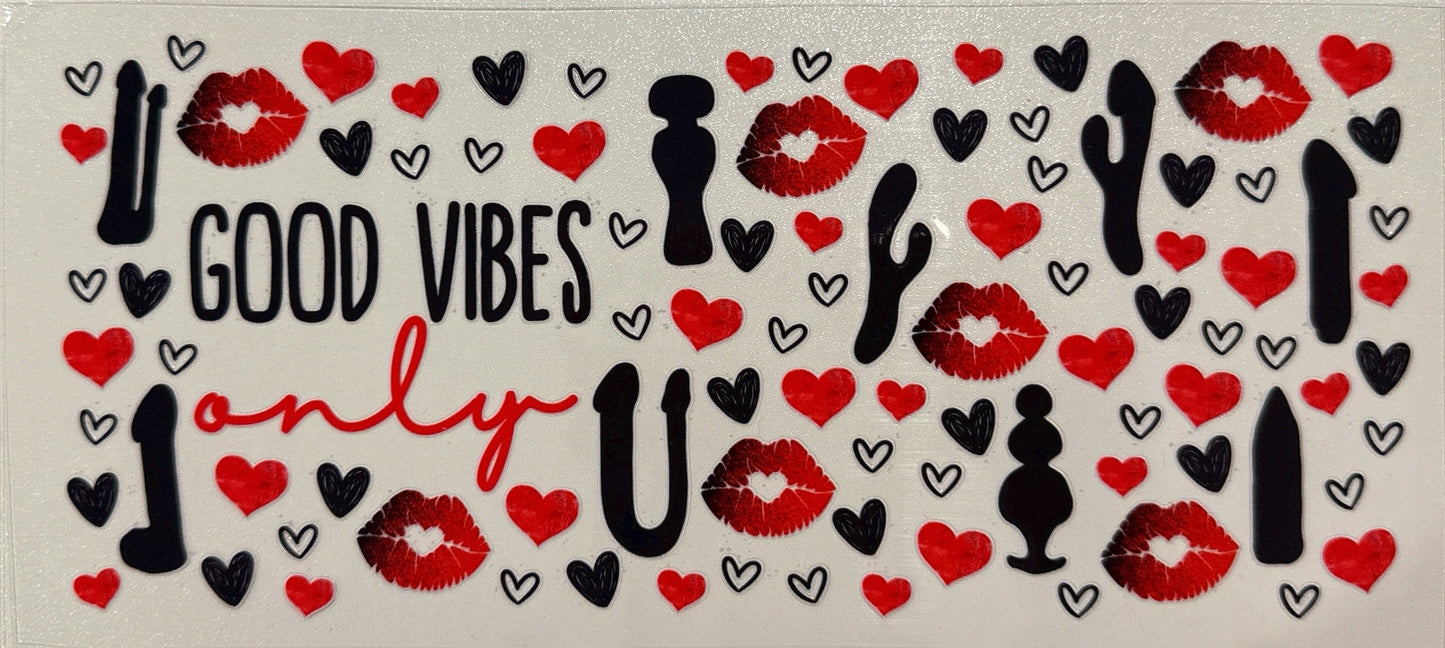 GOOD VIBES
only